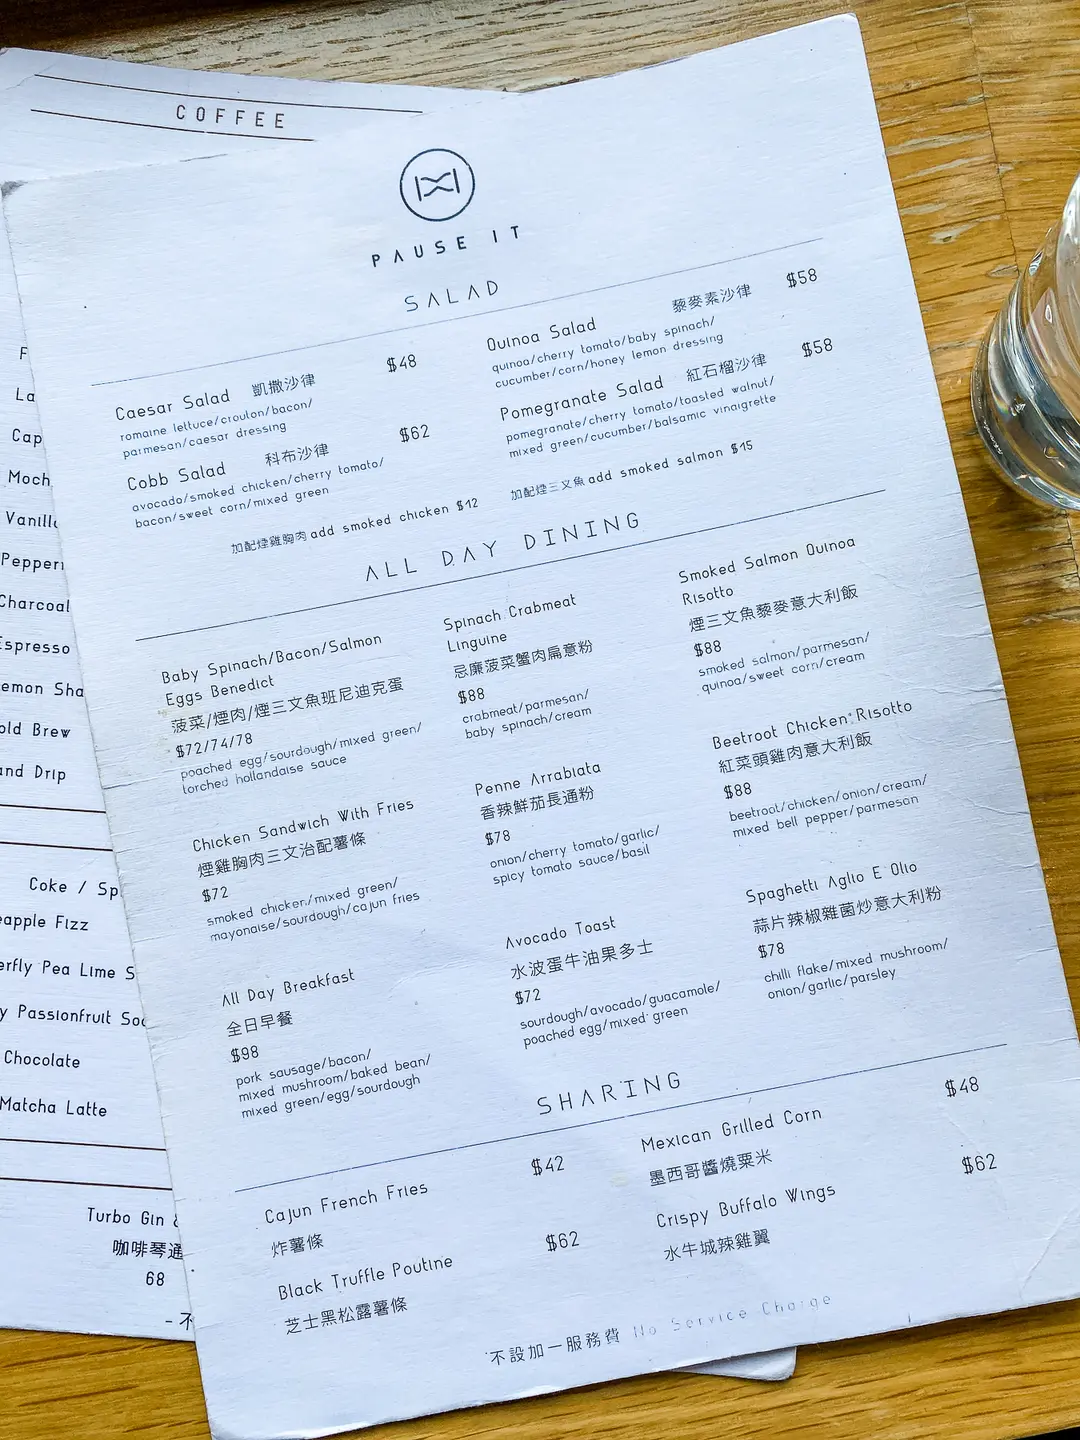 COFFEE
PAUSE IT
SALAD
Caesar Salad 凱撒沙律 $48
romaine lettuce/crouton/bacon/
parmesan/caesar dressing
Cobb Salad 科布沙律 $62
avocado/smoked chicken/cherry tomato/
bacon/sweet corn/mixed green
Quinoa Salad 藜麥素沙律 $58
quinoa/cherry tomato/baby spinach/
cucumber/corn/honey lemon dressing
Pomegranate Salad 紅石榴沙律 $58
pomegranate/cherry tomato/toasted walnut/
mixed green/cucumber/balsamic vinaigrette
加配煙雞胸肉 add smoked chicken $12
加配煙三文魚 add smoked salmon $15
ALL DAY DINING
Baby Spinach/Bacon/Salmon
Eggs Benedict
菠菜/煙肉/煙三文魚班尼迪克蛋
$72/74/78
poached egg/sourdough/mixed green/
torched hollandaise sauce
Chicken Sandwich With Fries
煙雞胸肉三文治配薯條
$72
smoked chicken/mixed green/
mayonaise/sourdough/cajun fries
All Day Breakfast
全日早餐
$98
pork sausage/bacon/
mixed mushroom/baked bean/
mixed green/egg/sourdough
Spinach Crabmeat
Linguine
忌廉菠菜蟹肉扁意粉
$88
crabmeat/parmesan/
baby spinach/cream
Penne Arrabiata
香辣鮮茄長通粉
$78
onion/cherry tomato/garlic/
spicy tomato sauce/basil
Avocado Toast
水波蛋牛油果多士
$72
sourdough/avocado/guacamole/
poached egg/mixed green
Smoked Salmon Quinoa
Risotto
煙三文魚藜麥意大利飯
$88
smoked salmon/parmesan/
quinoa/sweet corn/cream
Beetroot Chicken Risotto
紅菜頭雞肉意大利飯
$88
beetroot/chicken/onion/cream/
mixed bell pepper/parmesan
Spaghetti Aglio E Olio
蒜片辣椒雜菌炒意大利粉
$78
chilli flake/mixed mushroom/
onion/garlic/parsley
SHARING
Cajun French Fries $42
炸薯條
Black Truffle Poutine $62
芝士黑松露薯條
Mexican Grilled Corn $48
墨西哥醬燒粟米
Crispy Buffalo Wings $62
水牛城辣雞翼
不設加一服務費 No Service Charge
F
La
Cap
Moch
Vanill
Pepper
Charcoal
Espresso
emon Sha
old Brew
and Drip
Coke / Sp
eapple Fizz
erfly Pea Lime S
y Passionfruit So
Chocolate
Matcha Latte
Turbo Gin
咖啡琴通
68
- 不